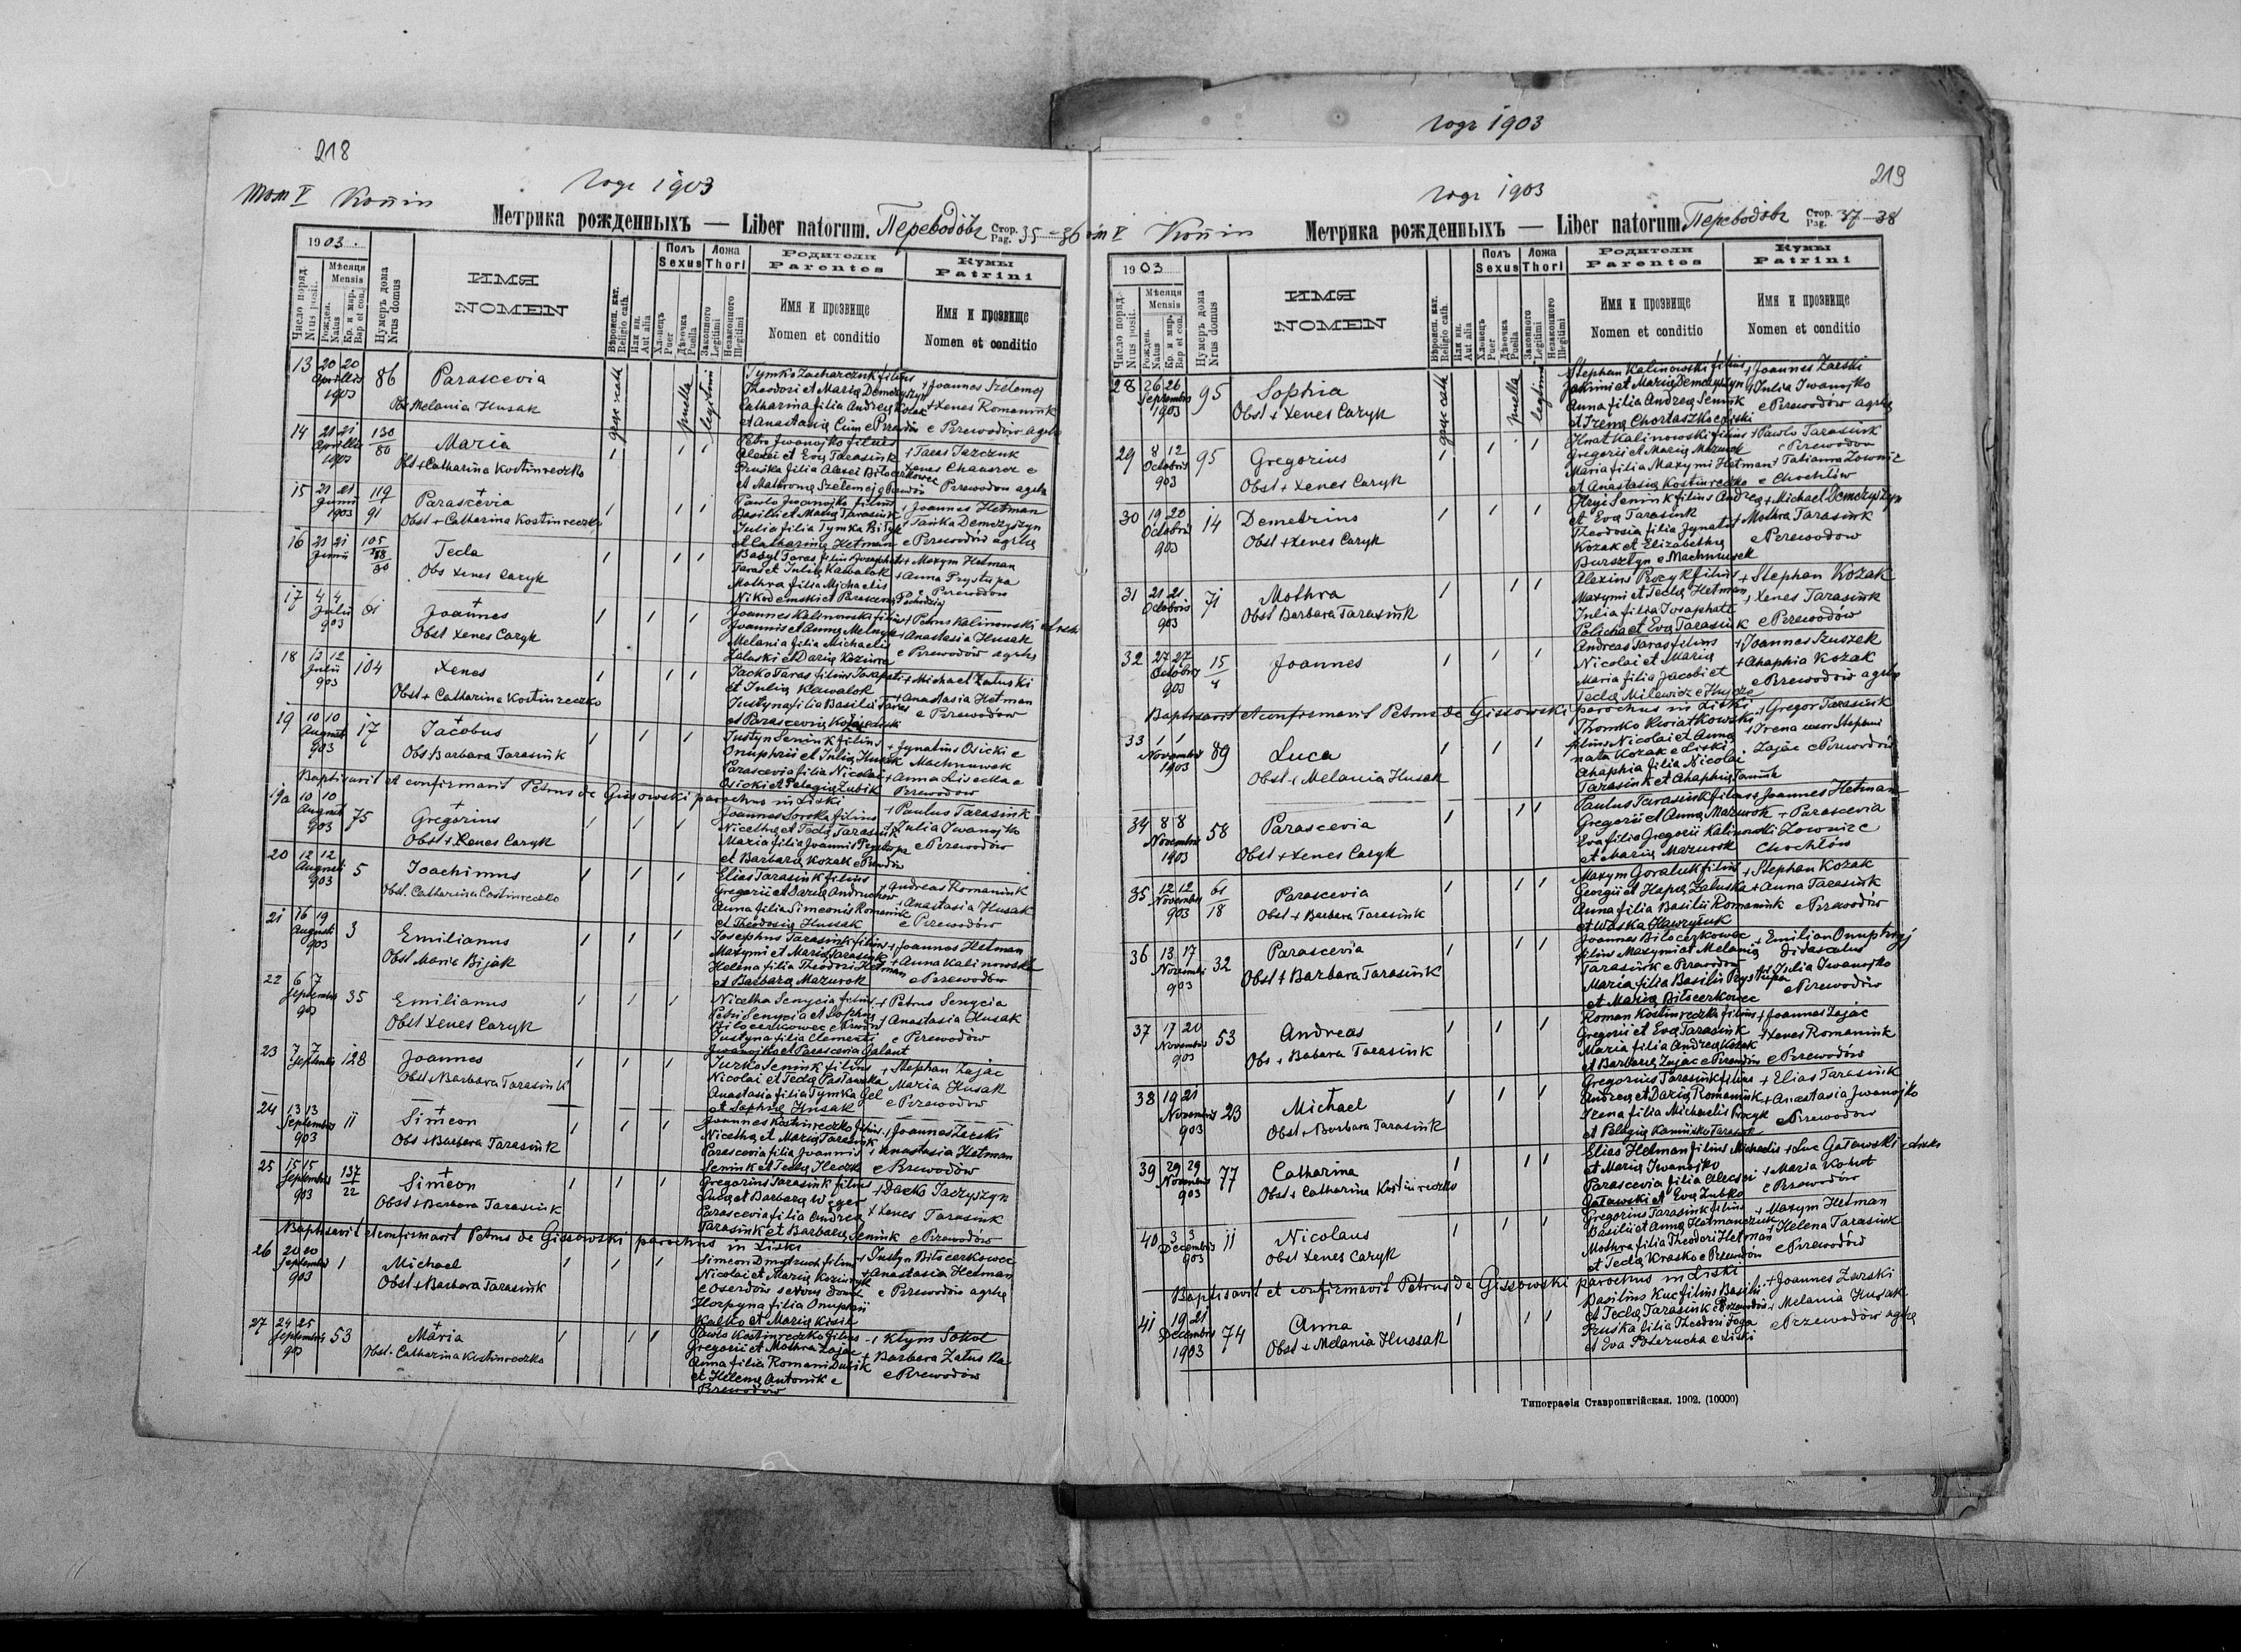 218
годъ 1903
том V Копія
Метрика рожденныхъ — Liber natorum. Переводôвъ Стор. Pag. 35-36
1903.
Число поряд. Nrus posit.
Мѣсяця Mensis
Рожден. Natus
Кр. и мир. Bap et con.
Нумеръ дома Nrus domus
ИМЯ
NOMEN
Вѣроисп. кат. Religio cath.
Или ин. Aut alia
Полъ Sexus
Хлопець Puer
Дѣвочка Puella
Ложа Thori
Законного Legitimi
Незаконного Illegitimi
Родители
Parentes
Имя и прозвище
Nomen et conditio
Кумы
Patrini
Имя и прозвище
Nomen et conditio
13 20 20 Aprillis 1903 86 Parascevia
Obs Melania Husak
puella
Tymko Zacharczuk filius
Theodori et Maria Demczyszyn
Catharina filia Andrea Kozak
+ Joannes Szelemej
+ Xenes Romaniuk
e Przewodów agrla
14 21 21 Aprillis 1903 130/80 Maria
Obst + Catharina Kostiureczko
Petro Iwanojko filius
Alexei et Eva Tarasiuk
Pruśka filia Alexei Biłoczerkowec
et Mathrona Szelemej
+ Taras Jaczuk
15 21 21 Junii 1903 119/91 Parascevia
Obst + Catharina Kostiureczko
Pawło Iwanojko filius
Basilii et Maria Tarasiuk
et Catharina Hetman
+ Joannes Hetman
Demczyszyn
e Przewodów agrla
16 21 21 Junii Tecla
Obs Xenes Caryk
Taras et Julia Kawalok
Mothra filia Michaelis
+ Maxym Hetman
+ Anna Prystupa
e Przewodów
17 4 4 Julii 903 61 Joannes
Obst Xenes Caryk
Joannes Kalinowski filius
Joannis et Anna Melnyk
Melania filia Michaelis
Załuski et Daria
+ Petrus Kalinowski
+ Anastasia Husak
e Przewodów agrla
18 12 12 Julii 903 104 Xenes
Obst + Catharina Kostiureczko
Jacko Taras filius Josaphati
et Julia Kawalok
Justyna filia Basilii Taras
+ Michael Załuski
+ Anastasia Hetman
e Przewodów
19 10 10 Augusti 903 17 Jacobus
Obs Barbara Tarasiuk
Justyn Seniuk filius
Onuphrii et Julia Husak
Parascevia filia Nicolai
Osicki et Pelagia Zubik
+ Ignatius Osicki e
Machnuwek
+ Anna Lisecka e
Przewodow
Baptisavit et confirmavit Petrus de Gissowski parochus in Liski
19a 10 10 Augusti 903 75 Gregorius
Obst + Xenes Caryk
Nicetha et Tecla Tarasiuk
Maria filia Joannis Prystupa
et Barbara Kozak
+ Paulus Tarasiuk
+ Julia Iwanojko
e Przewodów
20 12 12 Augusti 903 5 Joachimus
Obst. Catharina Costiureczko
Elias Tarasiuk filius
Gregorii et Daria Andruchow
Anna filia Simeonis Romaniuk
et Theodosia Hussak
+ Andreas Romaniuk
+ Anastasia Husak
e Przewodów
21 16 19 Augusti 903 3 Emilianus
Obst Maria Bijak
Josephus Tarasiuk filius
Maxymi et Maria Tarasiuk
Helena filia Theodori Hetman
et Barbara Mazurok
+ Joannes Hetman
+ Anna Kalinowska
e Przewodów
22 6 7 Septembris 903 35 Emilianus
Obst Xenes Caryk
Nicetha Senycia filius
Petri Senycia et Sophia
Biłocerkowec
Justyna filia Clementi
Iwanojko et Parascevia Galant
+ Petrus Senycia
+ Anastasia Husak
e Przewodów
23 7 7 Septembris 128 Joannes
Obst + Barbara Tarasiuk
Jurko Seniuk filius
Nicolai et Tecla Pastawska
Anastasia filia Tymka Gel
et Sophia Husak
+ Stephan Zając
Maria Husak
e Przewodów
24 13 13 Septembris 903 11 Simeon
Obs + Barbara Tarasiuk
Joannes Kostiureczko filius
Nicetha et Maria Tarasiuk
Parascevia filia Joannis
Seniuk et Tecla
+ Joannes Zarski
+ Anastasia Hetman
e Przewodów
25 15 15 Septembris 903 137/22 Simeon
Obst + Barbara Tarasiuk
Gregorius Tarasiuk filius
Parascevia filia Andrea
Tarasiuk et Barbara Seniuk
+ Dacko Jaczyszyn
+ Xenes Tarasiuk
e Przewodów
Baptisavit et confirmavit Petrus de Gissowski parochus in Liski
26 20 20 Septembris 903 1 Michael
Obst + Barbara Tarasiuk
Simeon Dmytruch filius
Nicolai et Maria
Horpyna filia Onuphrii
Kalko et Maria Kisil
+ Justyn Biłocerkowec
+ Anastasia Hetman
e Przewodów agrla
27 24 25 Septembris 903 53 Maria
Obst. Catharina Kostiureczko
Pawło Kostiureczko filius
Gregorii et Mothra Zając
Anna filia Romani
et Helena Antonik e
Przewodów
+ Kłym Sokol
+ Barbara Załuska
e Przewodów
годъ 1903
219
годъ 1903
том V Копія
Метрика рожденныхъ — Liber natorum. Переводôвъ Стор. Pag. 37-38
1903
Число поряд. Nrus posit.
Мѣсяця Mensis
Рожден. Natus
Кр. и мир. Bap et con.
Нумеръ дома Nrus domus
ИМЯ
NOMEN
Вѣроисп. кат. Religio cath.
Или ин. Aut alia
Полъ Sexus
Хлопець Puer
Дѣвочка Puella
Ложа Thori
Законного Legitimi
Незаконного Illegitimi
Родители
Parentes
Имя и прозвище
Nomen et conditio
Кумы
Patrini
Имя и прозвище
Nomen et conditio
28 26 26 Septembris 1903 95 Sophia
Obst + Xenes Caryk
puella
Stephan Kalinowski filius
Jakimi et Maria Demczyszyn
Anna filia Andrea Seniuk
+ Joannes Zarski
+ Julia Iwanojko
e Przewodów agrla
29 8 12 Octobris 903 95 Gregorius
Obst + Xenes Caryk
Hnat Kalinowski filius
Gregorii et Maria Mazurok
Maria filia Maxymi Hetman
et Anastasia Kostiureczko
+ Pawło Tarasiuk
e Przewodów
+ Tatianna Zowniec
e Chochłów
30 19 20 Octobris 903 14 Demetrius
Obst + Xenes Caryk
Hryć Seniuk filius Andrea
et Eva Tarasiuk
Theodosia filia Ignatii
Kozak et Elizabetha
Bursztyn e Machnuwek
+ Michael Demczyszyn
+ Mothra Tarasiuk
e Przewodow
31 21 21 Octobris 903 71 Mothra
Obst Barbara Tarasiuk
Alexius Procyk filius
Maxymi et Tecla Hetman
Julia filia Josaphati
Policha et Eva Tarasiuk
+ Stephan Kozak
+ Xenes Tarasiuk
e Przewodów
32 27 27 Octobris 903 15/4 Joannes
Andreas Taras filius
Nicolai et Maria
Maria filia Jacobi et
Tecla Milewicz
+ Joannes Szuszek
+ Ahaphia Kozak
e Przewodów agrla
Baptisavit et confirmavit Petrus de Gissowski parochus in Liski
33 1 1 Novembris 1903 89 Luca
Obst + Melania Husak
Thomko Kwiatkowski
filius Nicolai et Anna
nata Kozak e Liski
Ahaphia filia Nicolai
Tarasiuk et Ahaphia
+ Gregor Tarasiuk
+ Irena uxor Stephani
Zając e Przewodów
34 8 8 Novembris 1903 58 Parascevia
Obst + Xenes Caryk
Paulus Tarasiuk filius
Gregorii et Anna Mazurok
Eva filia Gregorii Kalinowski
et Maria Mazurok
+ Joannes Hetman
+ Parascevia
Zowniec e
Chochłów
35 12 12 Novembris 903 61/18 Parascevia
Obst + Barbara Tarasiuk
Maxym Goraluk filius
Georgii et Hapa Załuska
Anna filia Basilii Romaniuk
et Waśka Hawryluk
+ Stephan Kozak
+ Anna Tarasiuk
e Przewodów
36 13 17 Novembris 903 32 Parascevia
Obst + Barbara Tarasiuk
Joannes Biłocerkowec
filius Maxymi et Melania
Tarasiuk e Przewodów
Maria filia Basilii Prystupa
et Maria Biłocerkowec
+ Emilian Onuphryj
didascalus
+ Julia Iwanojko
e Przewodów
37 17 20 Novembris 903 53 Andreas
Obs + Babara Tarasiuk
Roman Kostiureczko filius
Gregorii et Eva Tarasiuk
Maria filia Andrea Kozak
et Barbara Zając e Przewodów
+ Joannes Zając
+ Xenes Romaniuk
e Przewodów
38 19 21 Novembris 903 23 Michael
Obst + Barbara Tarasiuk
Gregorius Tarasiuk filius
Andrea et Daria Romaniuk
Irena filia Michaelis Procyk
et Pelagia
+ Elias Tarasiuk
+ Anastasia Iwanojko
e Przewodow
39 29 29 Novembris 903 77 Catharina
Obst + Catharina Kostiureczko
Elias Hetman filius Michaelis
et Maria Iwanojko
Parascevia filia Alecsei
Gatawski et Eva Zubko
+ Luc Gatawski e Liski
+ Maria Kohut
e Przewodów
40 3 3 Decembris 903 11 Nicolaus
Obst Xenes Caryk
Gregorius Tarasiuk filius
Basilii et Anna Hetmanczuk
Mothra filia Theodori Hetman
et Tecla Krasko e Przewodów
+ Maxym Hetman
+ Helena Tarasiuk
e Przewodów
Baptisavit et confirmavit Petrus de Gissowski parochus in Liski
41 19 21 Decembris 1903 74 Anna
Obst + Melania Hussak
Basilius Kuc filius Basilii
et Tecla Tarasiuk e Przewodów
Pruśka filia Theodori Foga
et Eva Poterucha e Liski
+ Joannes Zarski
+ Melania Husak
e Przewodów agrla
Типографія Ставропигійская. 1902. (10000)